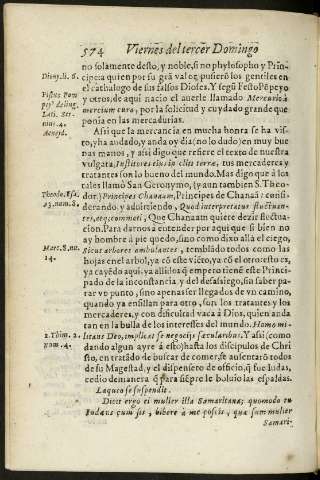 574 Viernes del tercer Domingo
no solamente desto, y noble, si no phylosopho y Prin-
Diony. li. 6. cipe: a quien por su grā valor pusierō los gentiles en
el cathalogo de sus falsos Dioses. Y segū Festo Pōpeyo
Festus Pom y otros, de aqui nacio el auerle llamado Mercurio à
pey de ling. mercium cura, por la solicitud y cuydado grande que
Lati. Ser-
uius. 4. ponia en las mercadurias.
Aeneyd. Assi que la mercancia en mucha honra se ha vis-
to, y ha andado, y anda oy dia (no lo dudo) en muy bue
nas manos, y assi digo que refiere el texto de nuestra
vulgata, Institores eius inclyti terræ, tus mercaderes y
tratantes son lo bueno del mundo. Mas digo que à los
tales llamò San Geronymo, (y aun tambien S. Theo-
Theodo. Isa. dor.) Principes Chanaam, Principes de Chanaā: consi-
23. num. 8. derando, y aduirtiendo, Quod interpretatur fluctuan-
tes, atque commoti, Que Chanaam quiere dezir fluctua-
cion. Para daros a entender por aqui que si bien no
ay hombre à pie quedo, sino como dixo allà el ciego,
Marc. 8. nu. sicut arbores ambulantes, temblādo todos como las
24. hojas en el arbol, ya cō este viēto, ya cō el otro: esto es,
ya cayēdo aqui, ya alli: los q̄ empero tienē este Princi-
pado de la inconstancia y del desasosiego, sin saber pa-
rar vn punto, sino apenas ser llegados de vn camino,
quando ya ensillan para otro, son los tratantes y los
mercaderes, y con dificultad vaca à Dios, quien anda
tan en la bulla de los interesses del mundo. Homo mi-
2. Thim. 2. litans Deo, implicat se negocijs sæcularibus. Y assi (como
num. 4. dando algun ayre à esto) hasta los discipulos de Chri
sto, en tratādo de buscar de comer, se ausentarō todos
de su Magestad, y el dispensero de officio, q̄ fue Iudas,
cedio de manera q̄ para siēpre le boluio las espaldas.
Laqueo se suspendit.
Dicit ergo ei mulier illa Samaritana; quomodo tu
Iudæus cum sis, bibere à me poscis, quæ sum mulier
Samari-